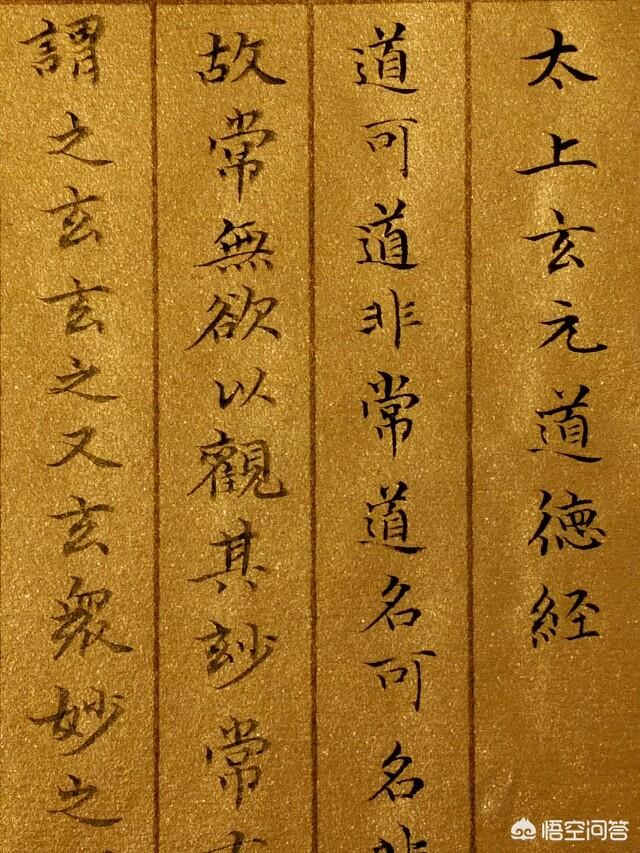 太上玄元道德経
道可道非常道名可名非
故常無欲以觀其玅常
謂之玄玄之又玄眾妙之
悟空问答